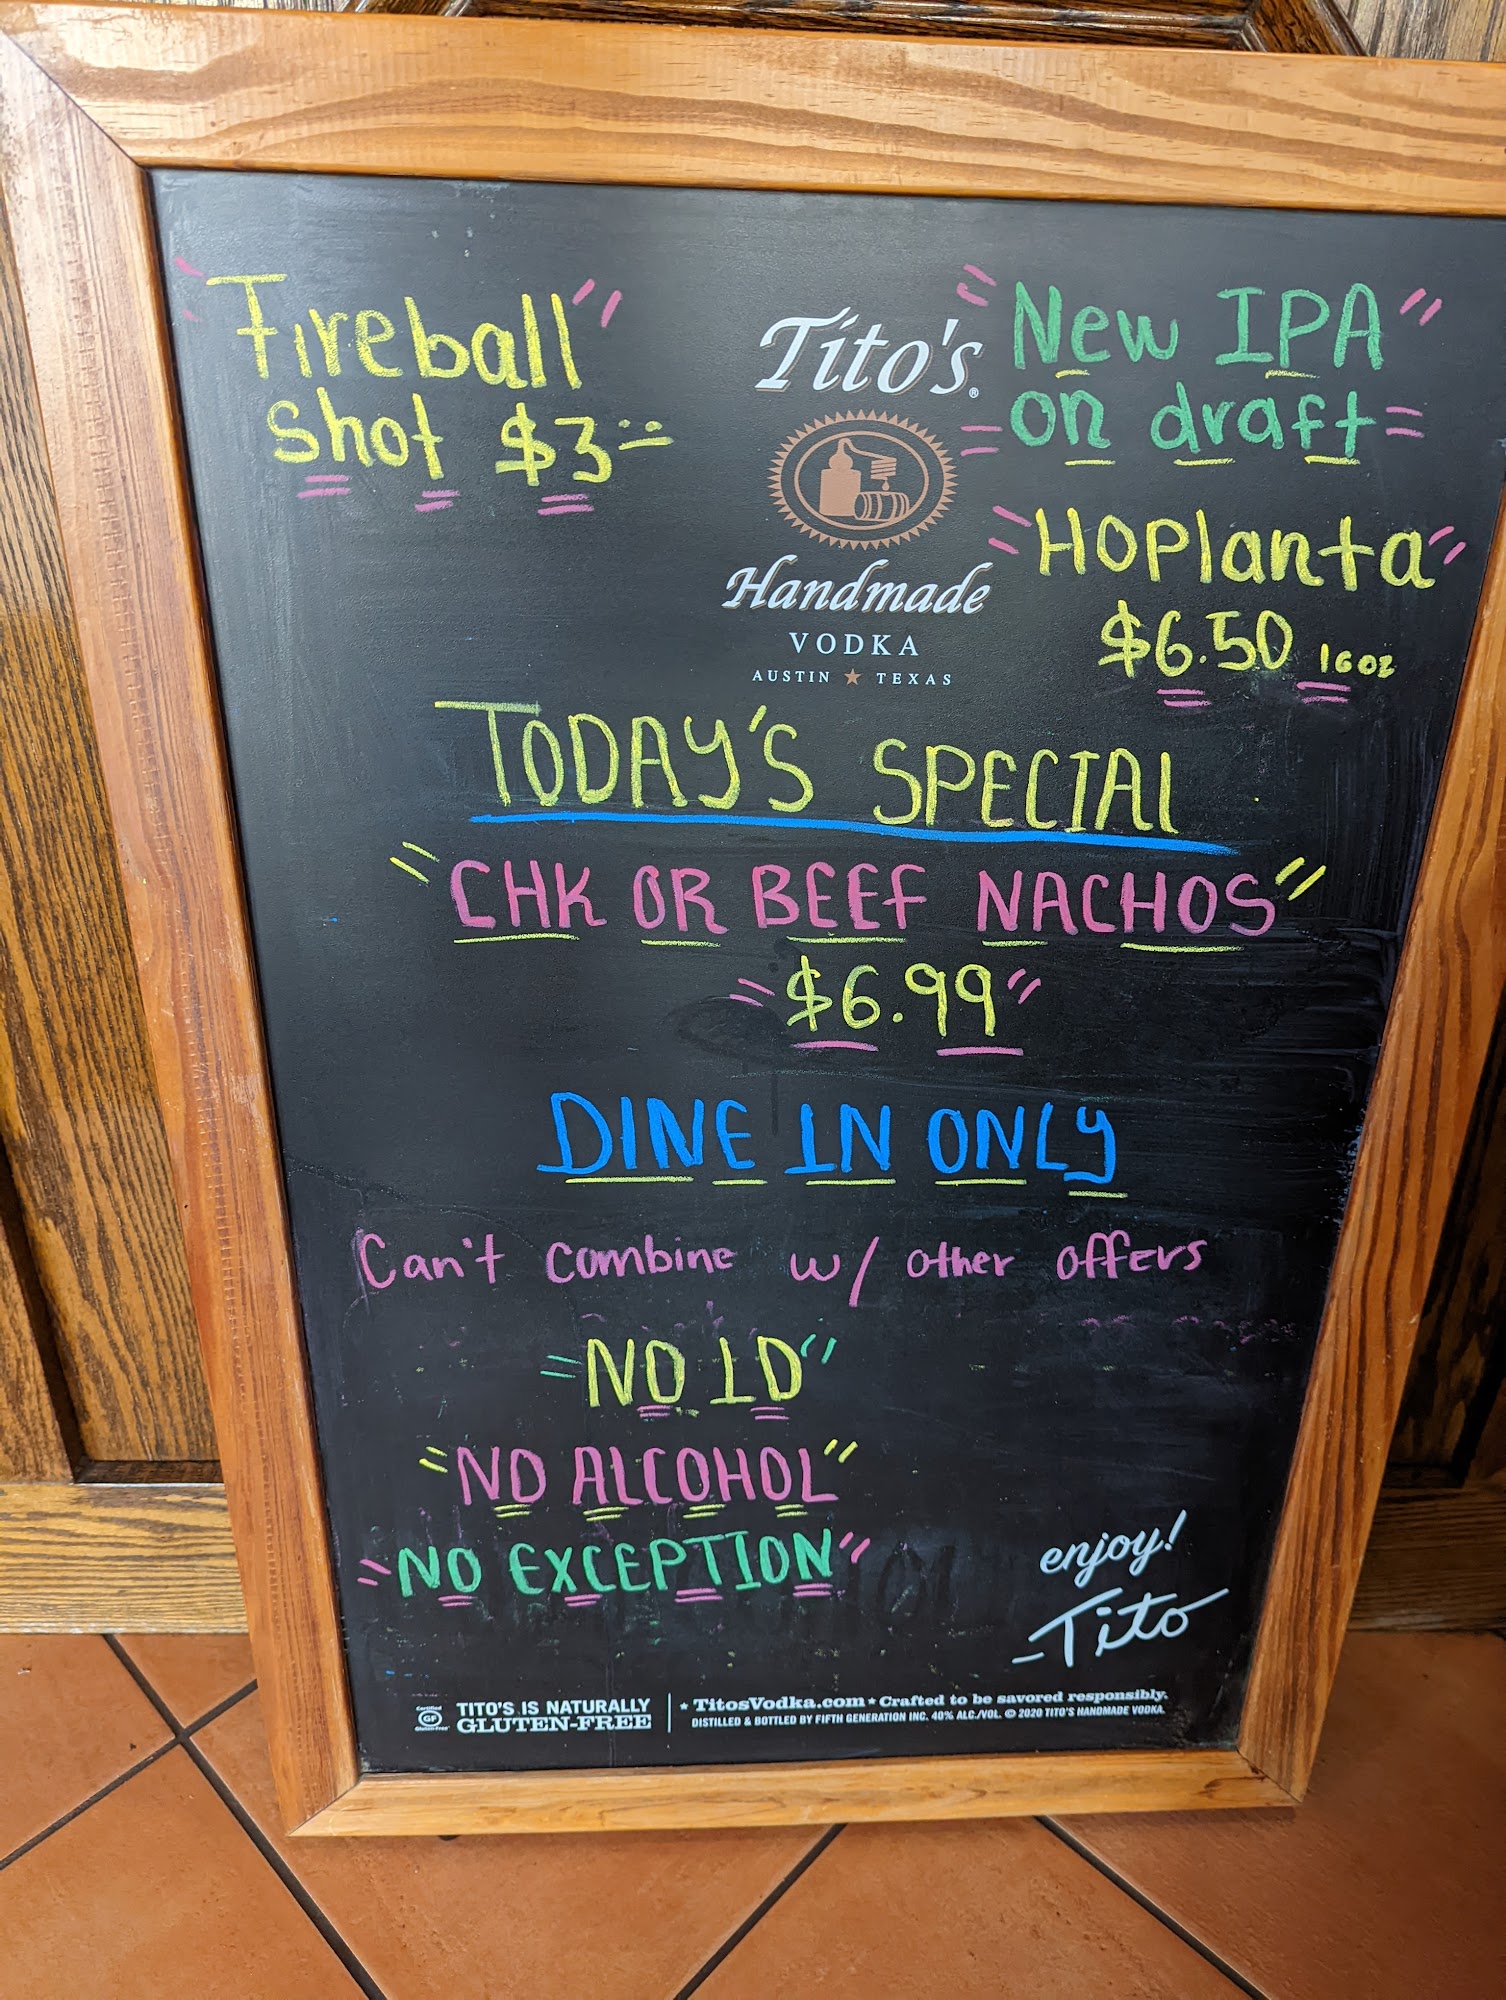 "Fireball"
Shot $3
Tito's®
Handmade
VODKA
AUSTIN ★ TEXAS
"New IPA"
on draft
"HOPlanta"
$6.50 16oz
TODAY'S SPECIAL
"CHK OR BEEF NACHOS"
"$6.99"
DINE IN ONLY
Can't combine w/ other offers
"NO ID"
"NO ALCOHOL"
"NO EXCEPTION"
enjoy!
-Tito
Certified
GF
Gluten-Free
TITO'S IS NATURALLY
GLUTEN-FREE
★ TitosVodka.com ★ Crafted to be savored responsibly.
DISTILLED & BOTTLED BY FIFTH GENERATION INC. 40% ALC./VOL. © 2020 TITO'S HANDMADE VODKA.